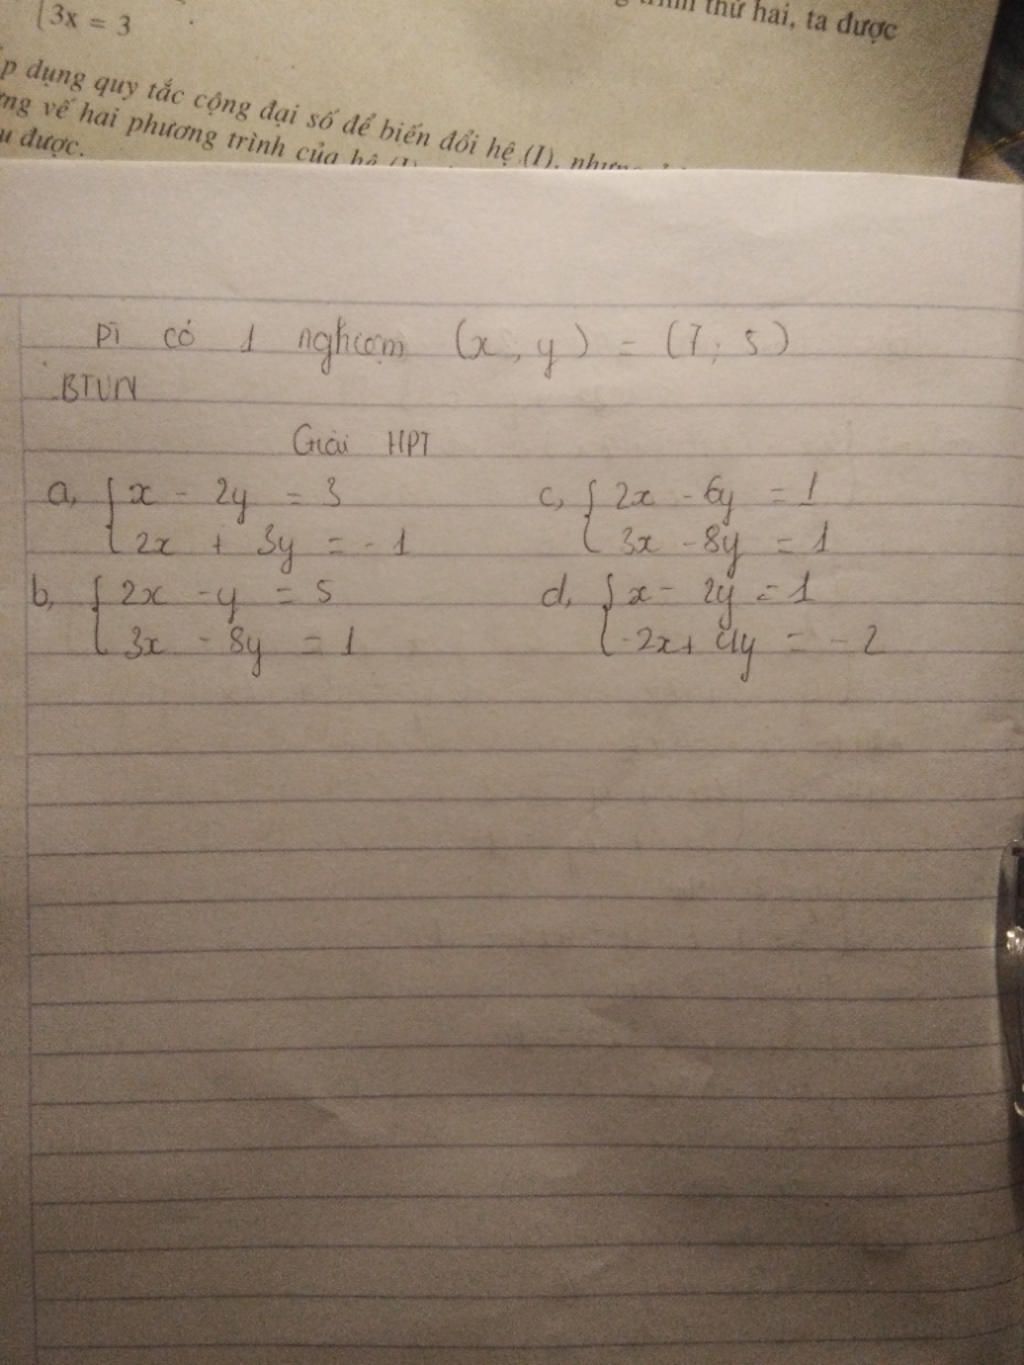 3x = 3
trình thứ hai, ta được
p dụng quy tắc cộng đại số để biến đổi hệ (I), nhưng
ng vế hai phương trình của hệ (I)
u được.
pt có 1 nghiệm (x, y) = (7; 5)
BTVN
Giải HPT
a, { x - 2y = 3
2x + 3y = -1
b, { 2x - y = 5
3x - 8y = 1
c, { 2x - 6y = 1
3x - 8y = 1
d, { x - 2y = 1
-2x + 4y = -2